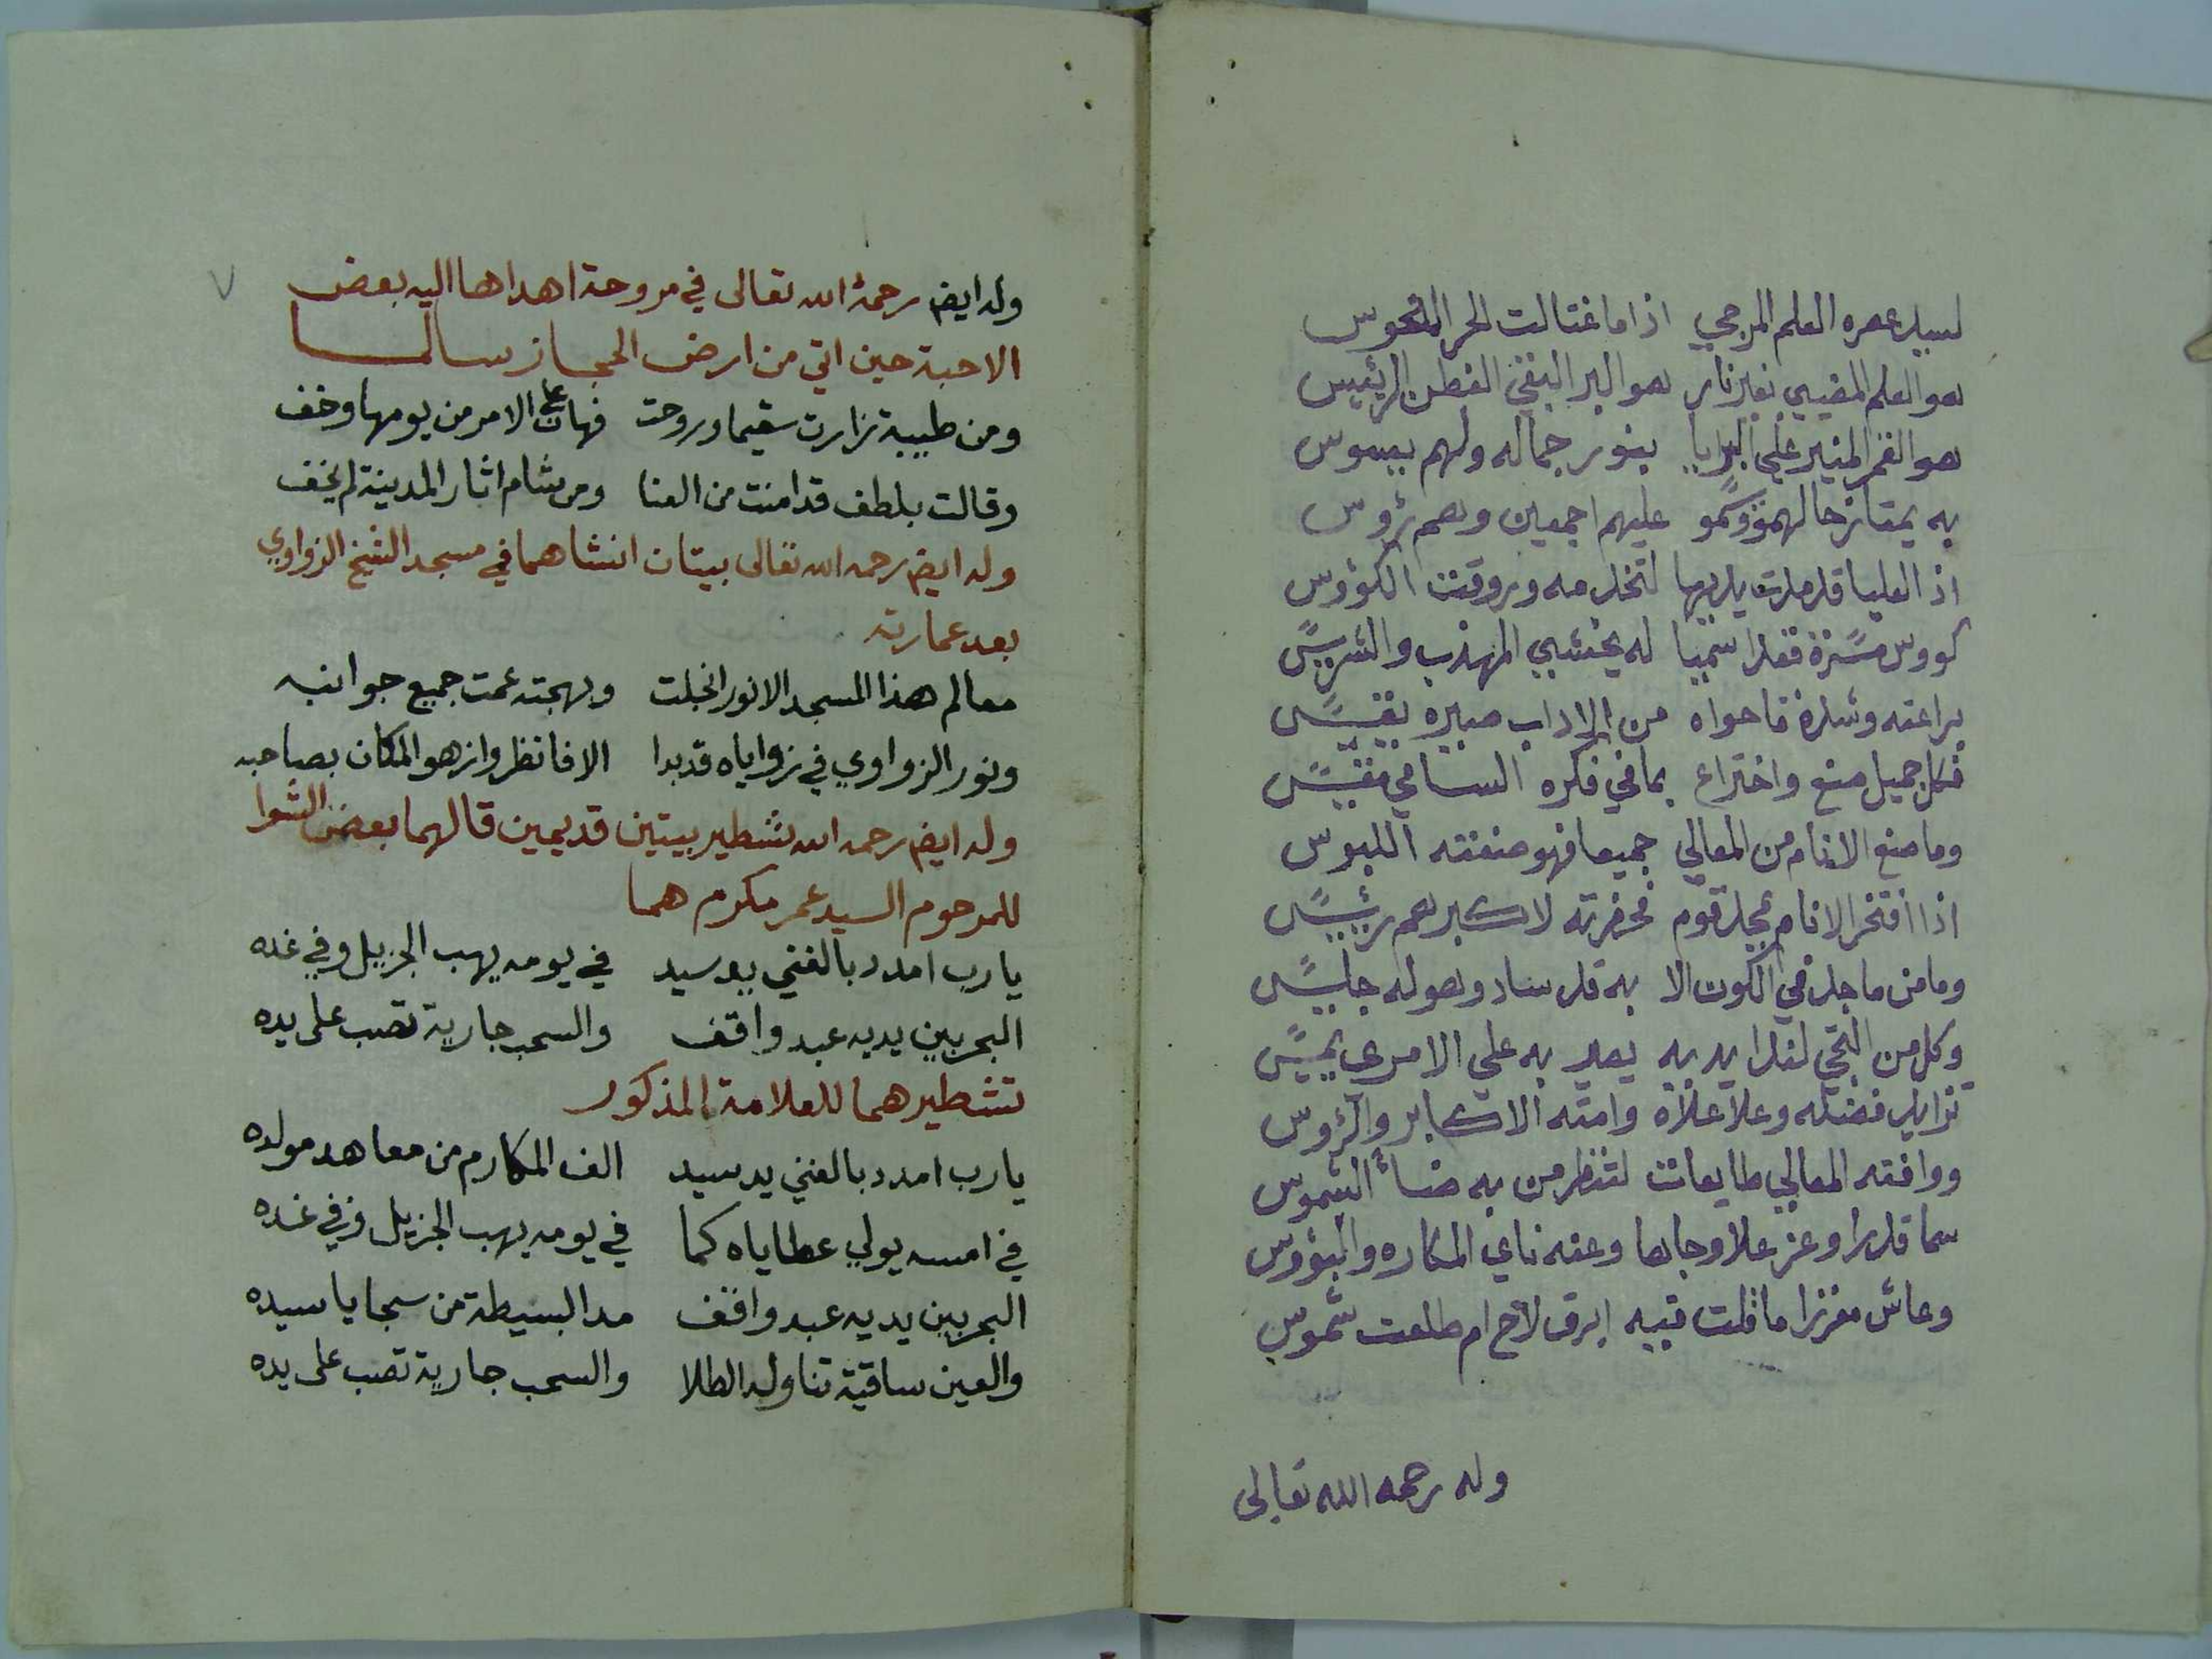 لسيد عصره العلم المرجي اذا ما غتالت الحر النحوس
هو العلم المضيي بغير نار هو البر التقي الفطن الرئيس
هو القمر المنير علي البرايا بنور جماله ولهم يسوس
به يمتاز حالهمو وكمو عليهم اجمعين وهم رؤس
اذ العليا قد مدت يديها لتخدمه وروقت الكؤوس
كووس مسرة فغدا سميا له يخشي المهذب والشريس
براعته وشدة ما حواه من الاداب صيره نفيس
فكل جميل صنع واختراع بما في فكره السامي مقيس
وما صنع الانام من المعالي جميعا فهو صنعته اللبوس
اذا افتخر الانام بمجد قوم فحضرته لاكبرهم رئيس
وما من ماجد في الكون الا به قد ساد وهو له جليس
وكل من التجي لندا يديه يعد به علي الامرى يميس
تزايد فضله وعلا علاه وامته الاكابر والرؤس
ووافته المعالي طايعات لتنظر من به ضاأ الشموس
سما قدرا وعز علا وجاها وعنه ناي المكاره والبؤوس
وعاش معززا ما قلت فيه ابرق لاح ام طلعت شموس
وله رحمه الله تعالى
٧
وله ايض رحمة الله تعالى في مروحة اهداها اليه بعض
الاحبة حين اتي من ارض الحجاز سالما
ومن طيبة زارت سقيما وروحت فهان على الامر من يومها وخف
وقالت بلطف قد امنت من العنا ومن شام اثار المدينة لم يخف
وله ايض رحمه الله تعالى بيتان انشاهما في مسجد الشيخ الزواوي
بعد عمارته
معالم هذا المسجد الانور انجلت وبهجته عمت جميع جوانبه
ونور الزواوي في زواياه قد بدا الا فانظروا زهو المكان بصاحبه
وله ايض رحمه الله تشطير بيتين قديمين قالهما بعض الشوا
للمرحوم السيد عمر مكرم هما
يا رب امدد بالغني يد سيد في يومه يهب الجزيل وفي غده
البحر بين يديه عبد واقف والسحب جارية تصب على يده
تشطيرهما للعلامة المذكور
يا رب امدد بالغني يد سيد الف المكارم من معاهد مولده
في امسه يولي عطاياه كما في يومه يهب الجزيل وفي غده
البحر بين يديه عبد واقف مد البسيطة من سجايا سيده
والعين ساقية تناوله الطلا والسحب جارية تصب على يده